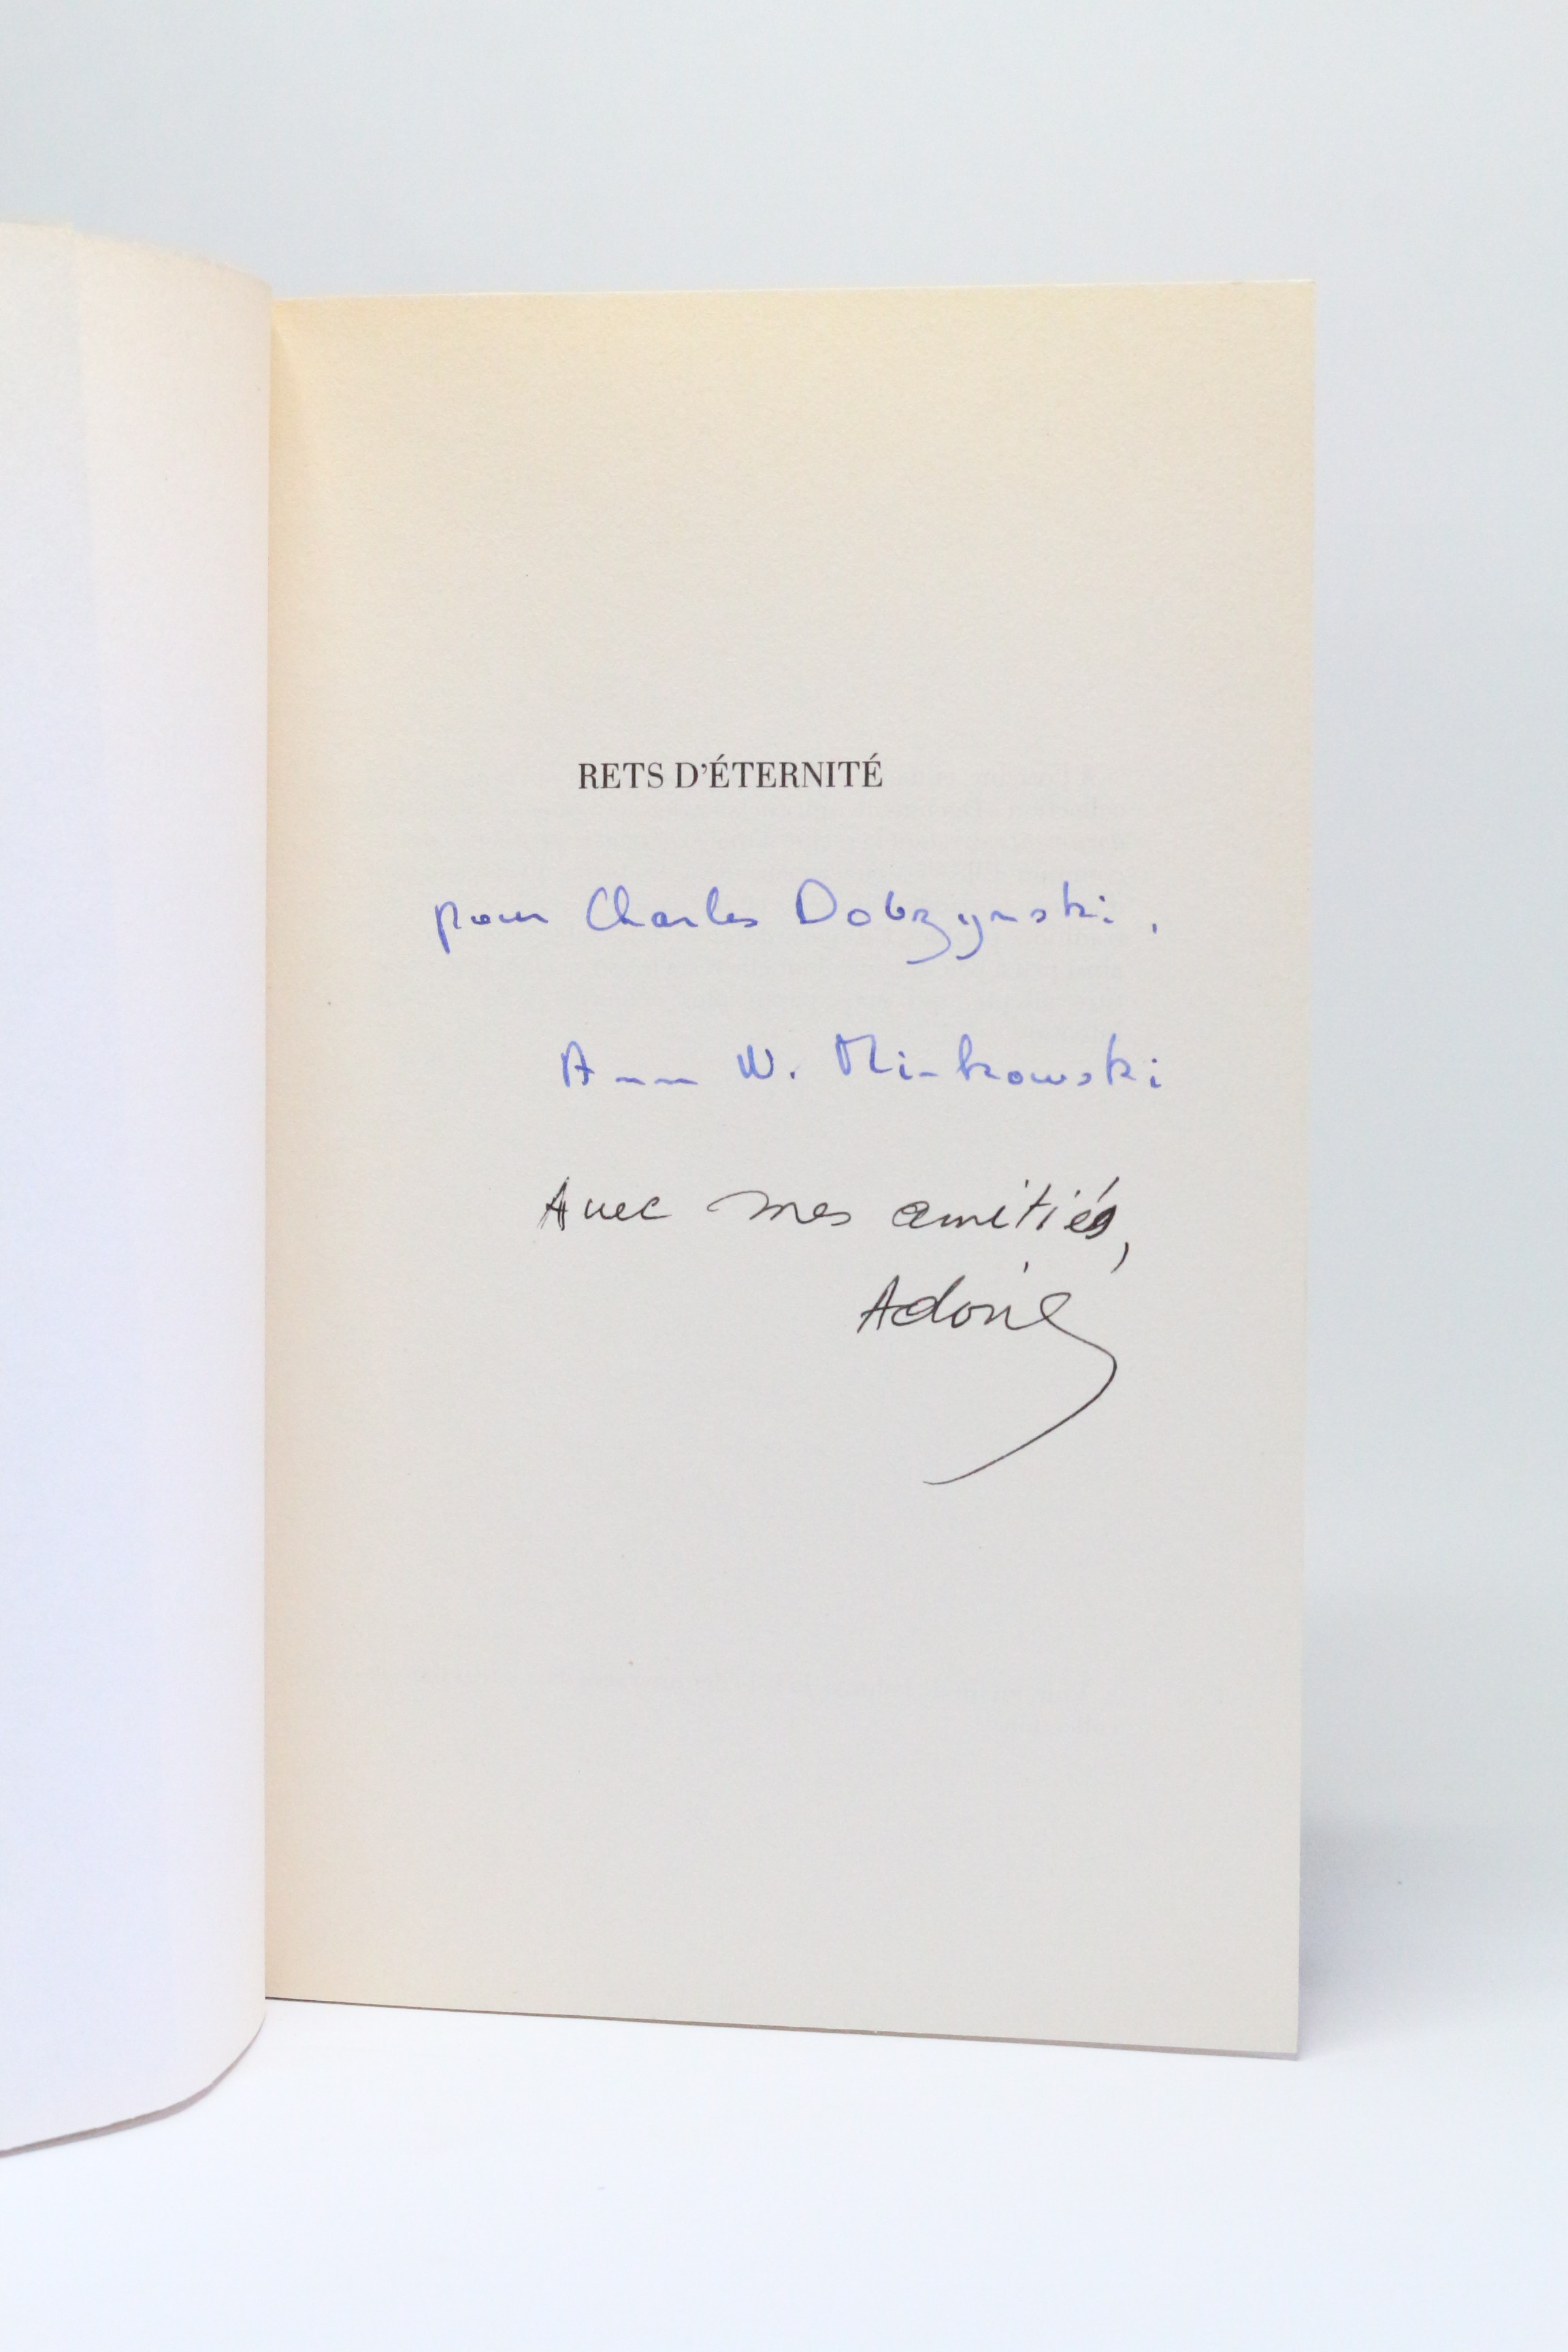 RETS D'ÉTERNITÉ
pour Charles Dobzynski.
Ann W. Minkowski
Avec mes amitiés,
Adonis